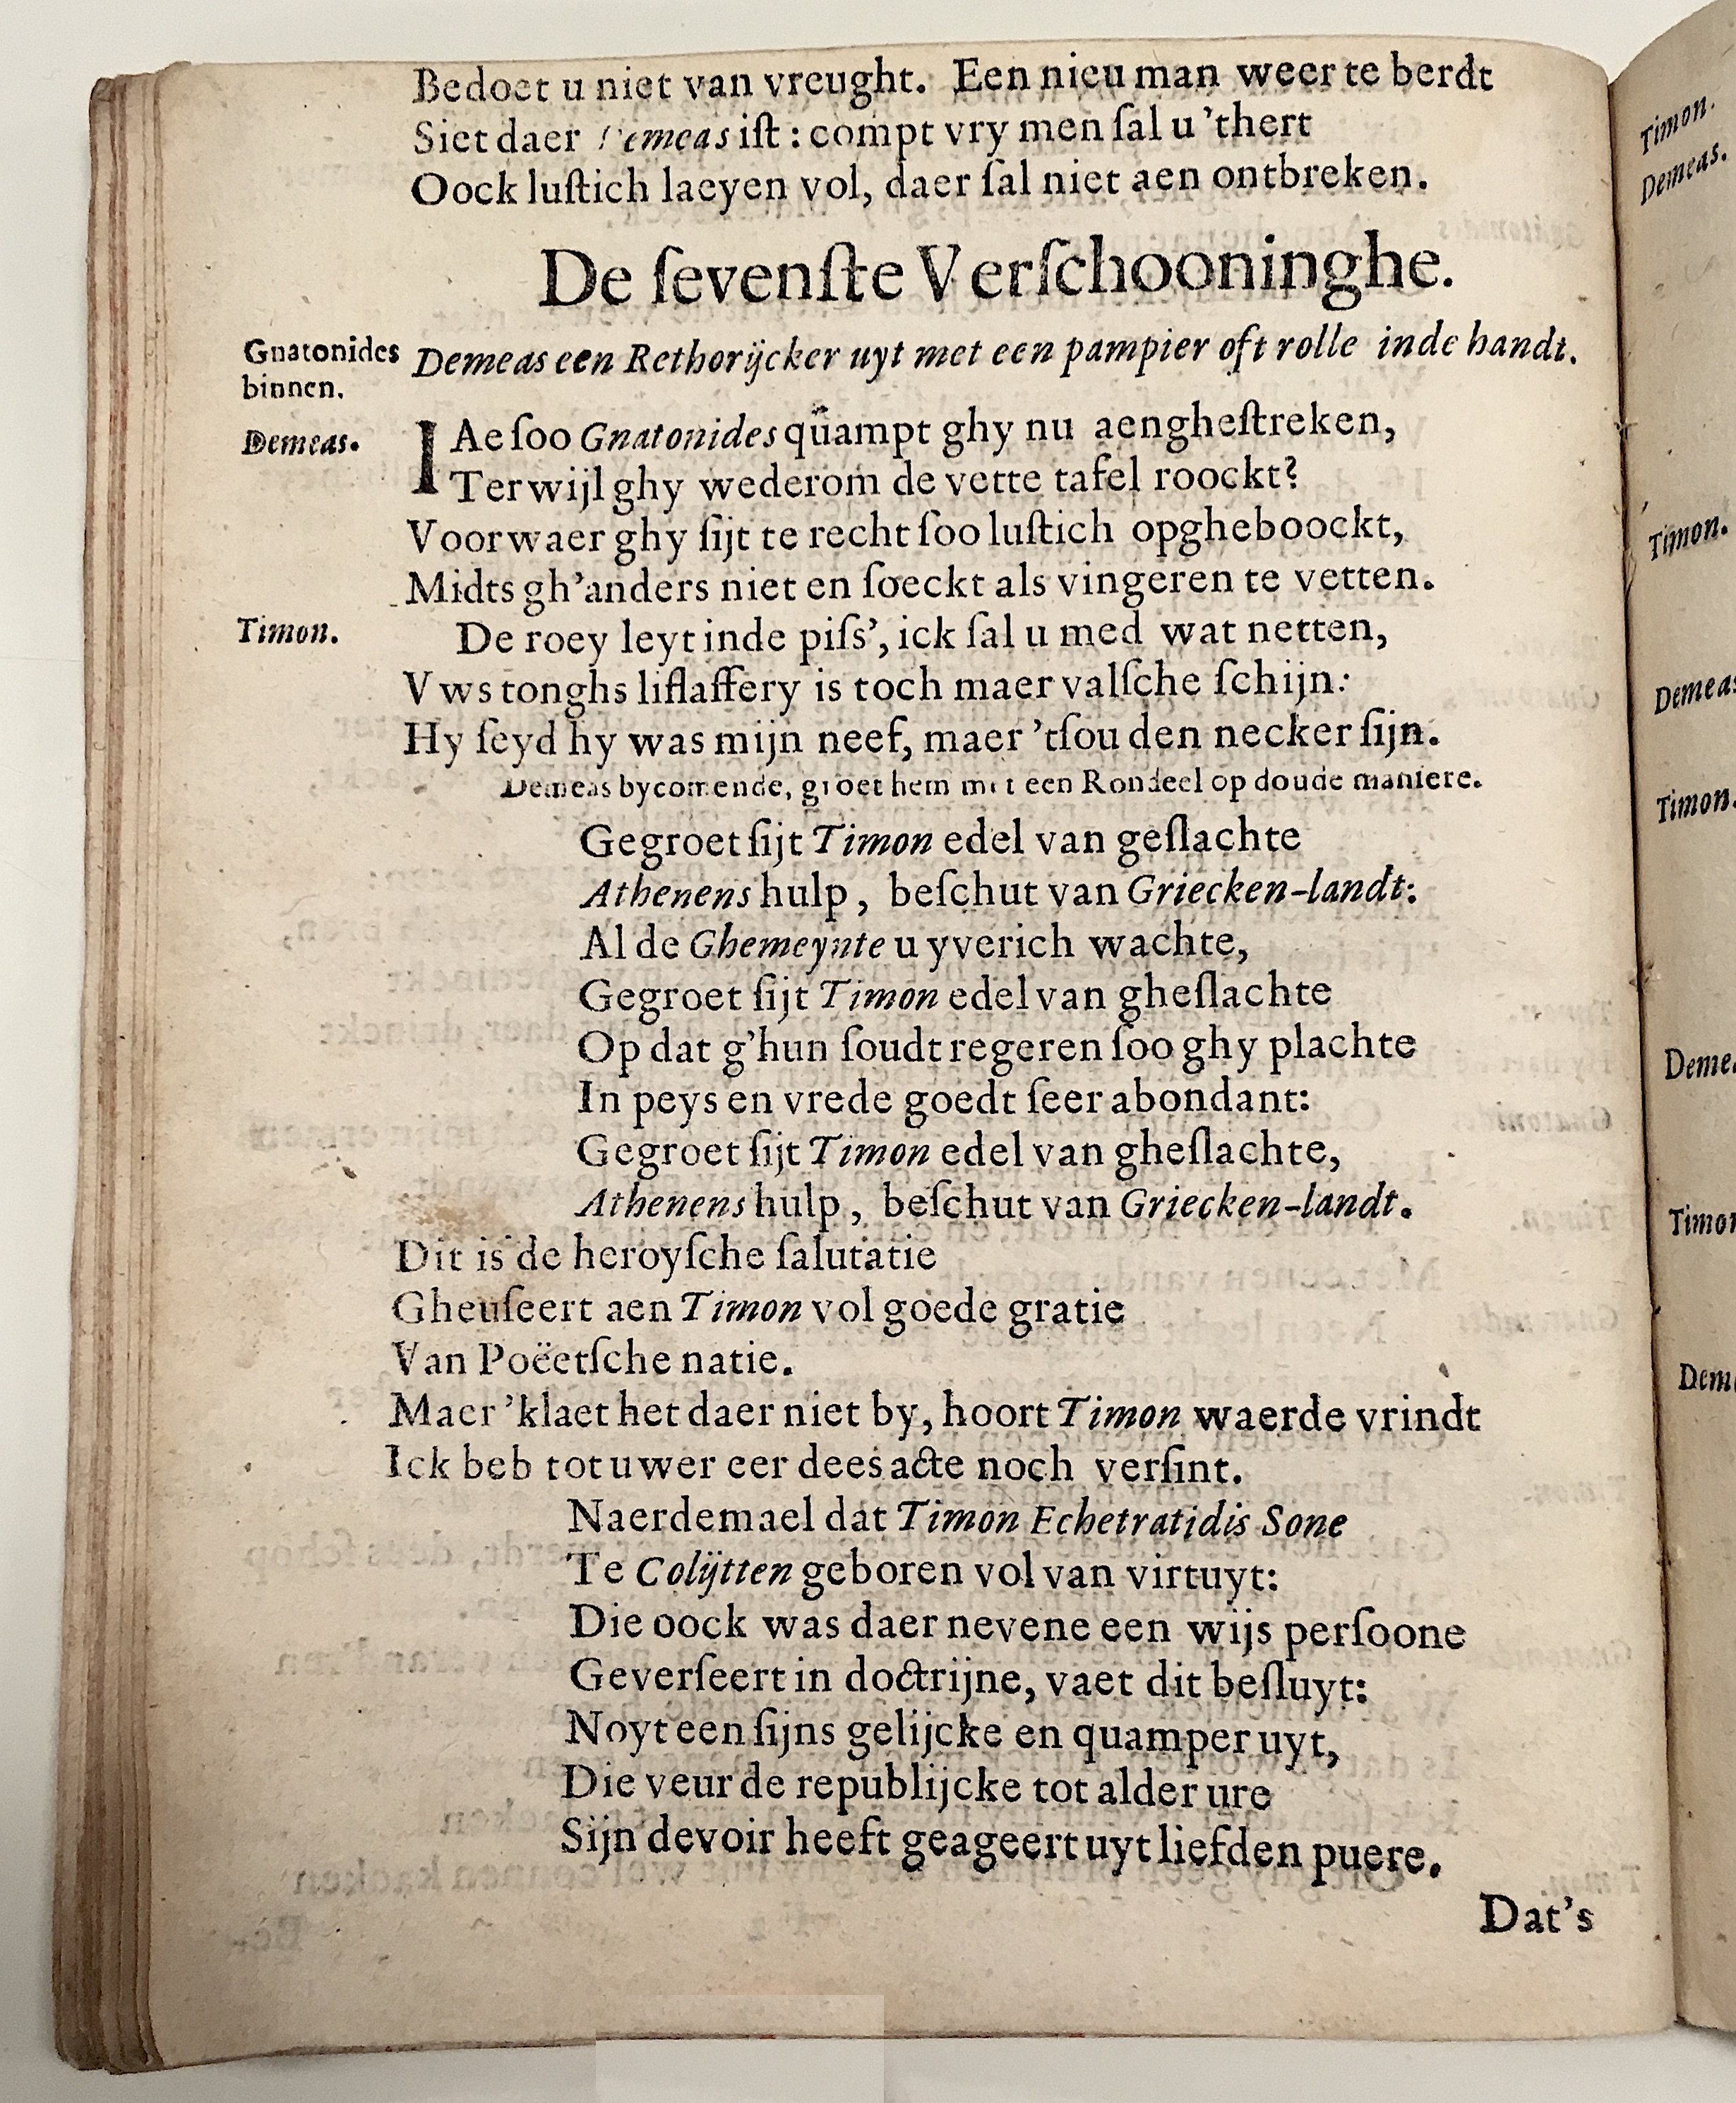 Bedoet u niet van vreught. Een nieu man weer te berdt
Siet daer Demeas iſt : compt vry men ſal u 'thert
Oock luſtich laeyen vol, daer ſal niet aen ontbreken.
De ſevenſte Verſchooninghe.
Gnatonides binnen.
Demeas een Rethorijcker uyt met een pampier oft rolle inde handt.
Demeas.
IAe ſoo Gnatonides quampt ghy nu aengheſtreken,
Terwijl ghy wederom de vette tafel roockt?
Voorwaer ghy ſijt te recht ſoo luſtich opgheboockt,
Midts gh'anders niet en ſoeckt als vingeren te vetten.
Timon.
De roey leyt inde piſs', ick ſal u med wat netten,
Vws tonghs liflaffery is toch maer valſche ſchijn:
Hy ſeyd hy was mijn neef, maer 'tſou den necker ſijn.
Demeas bycomende, groet hem met een Rondeel op doude maniere.
Gegroet ſijt Timon edel van geſlachte
Athenens hulp, beſchut van Griecken-landt:
Al de Ghemeynte u yverich wachte,
Gegroet ſijt Timon edel van gheſlachte
Op dat g'hun ſoudt regeren ſoo ghy plachte
In peys en vrede goedt ſeer abondant:
Gegroet ſijt Timon edel van gheſlachte,
Athenens hulp, beſchut van Griecken-landt.
Dit is de heroyſche ſalutatie
Gheuſeert aen Timon vol goede gratie
Van Poëetſche natie.
Maer 'klaet het daer niet by, hoort Timon waerde vrindt
Ick beb tot uwer eer dees acte noch verſint.
Naerdemael dat Timon Echetratidis Sone
Te Colijtten geboren vol van virtuyt:
Die oock was daer nevene een wijs perſoone
Geverſeert in doctrijne, vaet dit beſluyt:
Noyt een ſijns gelijcke en quamper uyt,
Die veur de republijcke tot alder ure
Sijn devoir heeft geageert uyt liefden puere.
Dat's
Timon.
Demeas.
Timon.
Demeas
Timon.
Deme
Timon
Dem